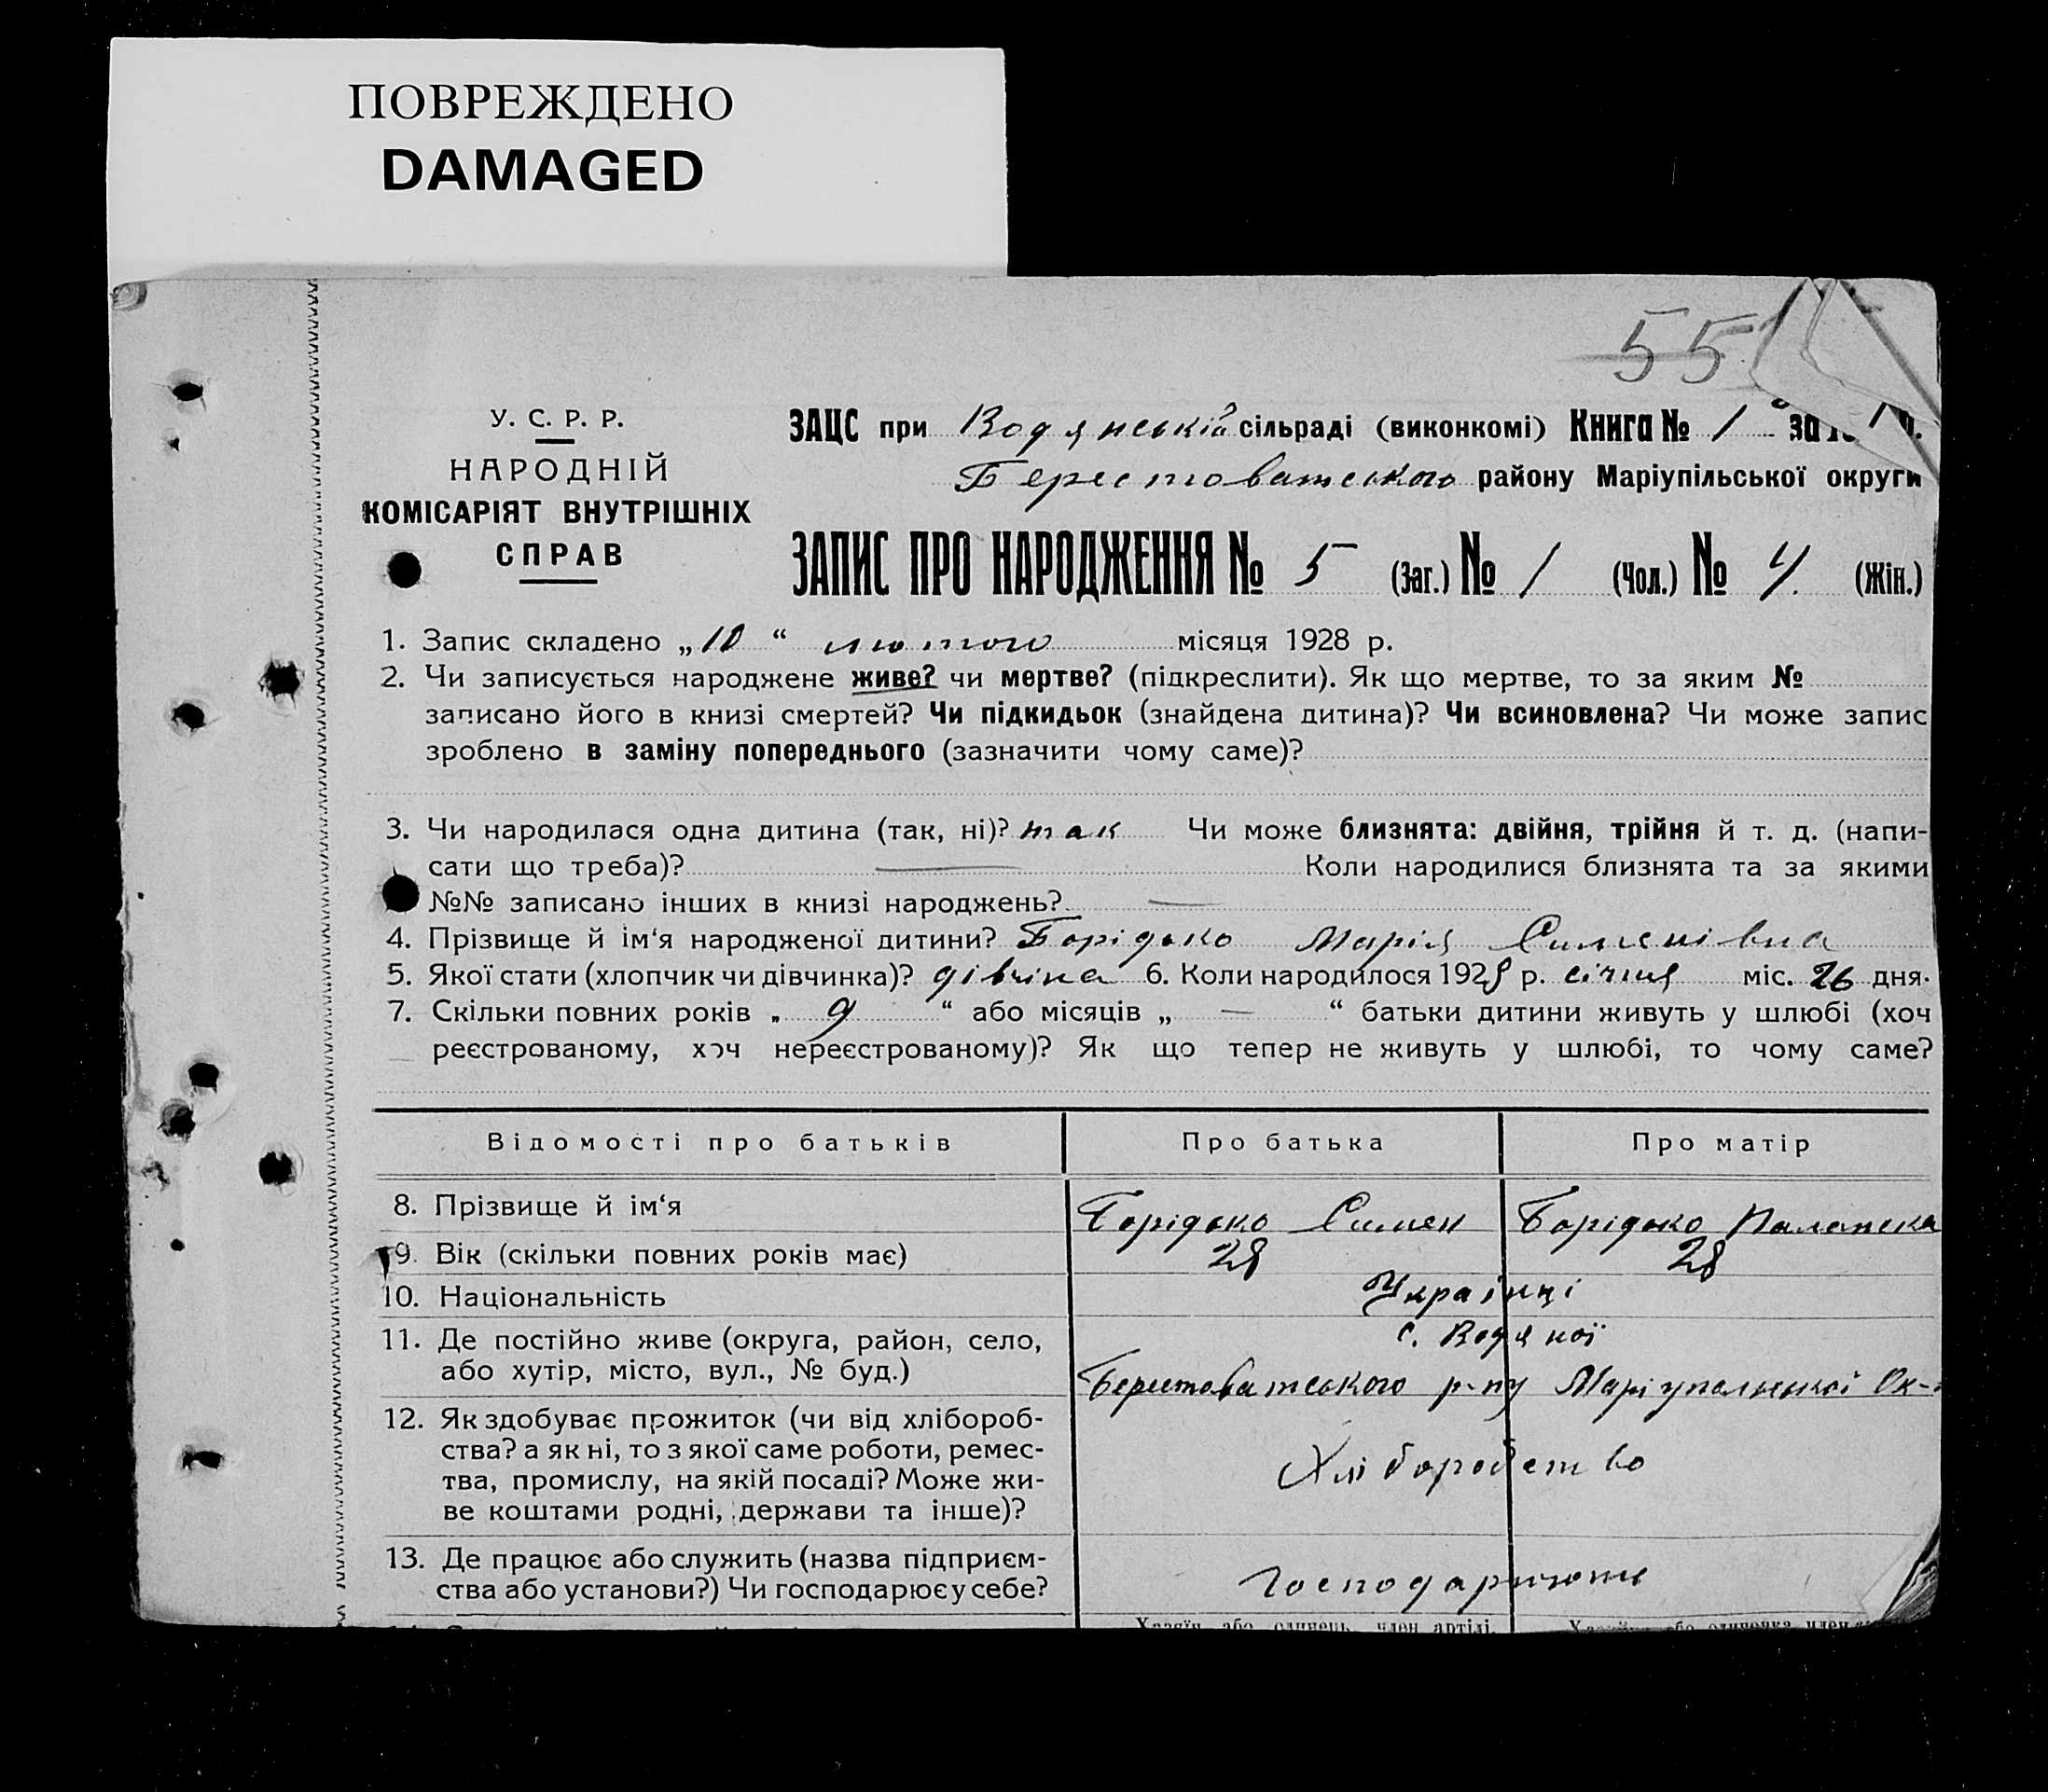 ПОВРЕЖДЕНО
DAMAGED
55
У. С. Р. Р.
НАРОДНІЙ
КОМІСАРІЯТ ВНУТРІШНІХ
СПРАВ
ЗАЦС при Водянській сільраді (виконкомі) Книга № 1 за
Берестоватського району Маріупільської округи
ЗАПИС ПРО НАРОДЖЕННЯ № 5 (Заг.) № 1 (Чол.) № 4. (Жін.)
1. Запис складено „10“ лютого місяця 1928 р.
2. Чи записується народжене живе? чи мертве? (підкреслити). Як що мертве, то за яким №
записано його в книзі смертей? Чи підкидьок (знайдена дитина)? Чи всиновлена? Чи може запис
зроблено в заміну попереднього (зазначити чому саме)?
3. Чи народилася одна дитина (так, ні)? так Чи може близнята: двійня, трійня й т. д. (напи-
сати що треба)? — Коли народилися близнята та за якими
№№ записано інших в книзі народжень? —
4. Прізвище й ім‘я народженої дитини? Борідько Марія Сименівна
5. Якої стати (хлопчик чи дівчинка)? дівчина 6. Коли народилося 1928 р. січня міс. 26 дня.
7. Скільки повних років „ 9 “ або місяців „ — “ батьки дитини живуть у шлюбі (хоч
реєстрованому, хоч нереєстрованому)? Як що тепер не живуть у шлюбі, то чому саме?
Відомості про батьків Про батька Про матір
8. Прізвище й ім‘я Борідько Симен Борідько Палажка
9. Вік (скільки повних років має) 28 28
10. Національність Українці
11. Де постійно живе (округа, район, село, с. Водяної
або хутір, місто, вул., № буд.) Берестоватського р-ну Маріупольської Ок-
12. Як здобуває прожиток (чи від хлібороб-
ства? а як ні, то з якої саме роботи, ремес- Хліборобство
тва, промислу, на якій посаді? Може жи-
ве коштами родні, держави та інше)?
13. Де працює або служить (назва підприєм- Господарюють
ства або установи?) Чи господарює у себе?
Хазяїн або одинець, член артілі,